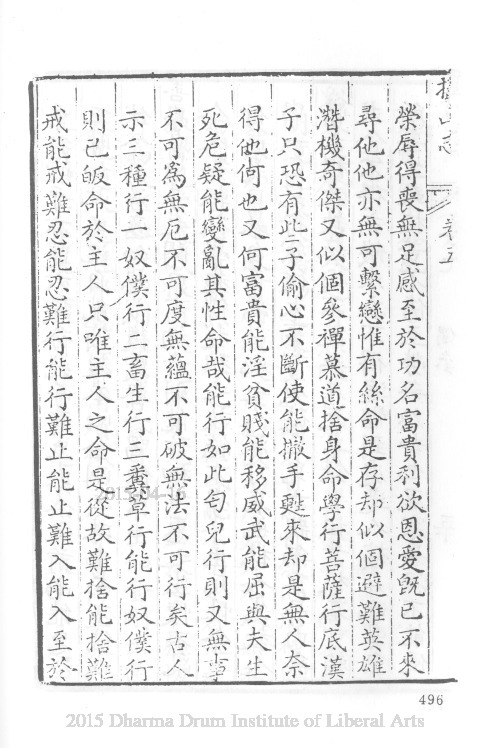 榮辱得喪無足感至於功名富貴利欲恩愛既已不來
尋他他亦無可繫戀惟有絲命是存却似個避難英雄
潛機奇傑又似個參禪慕道捨身命學行菩薩行底漢
子只恐有此二子偷心不斷使能撒手甦來却是無人奈
得他何也又何富貴能淫貧賤能移威武能屈與夫生
死危疑能變亂其性命哉能行如此句兒行則又無事
不可為無厄不可度無蘊不可破無法不可行矣古人
示三種行一奴僕行二畜生行三糞草行能行奴僕行
則已皈命於主人只唯主人之命是從故難捨能捨難
戒能戒難忍能忍難行能行難止能止難入能入至於
卷五
496
2015 Dharma Drum Institute of Liberal Arts